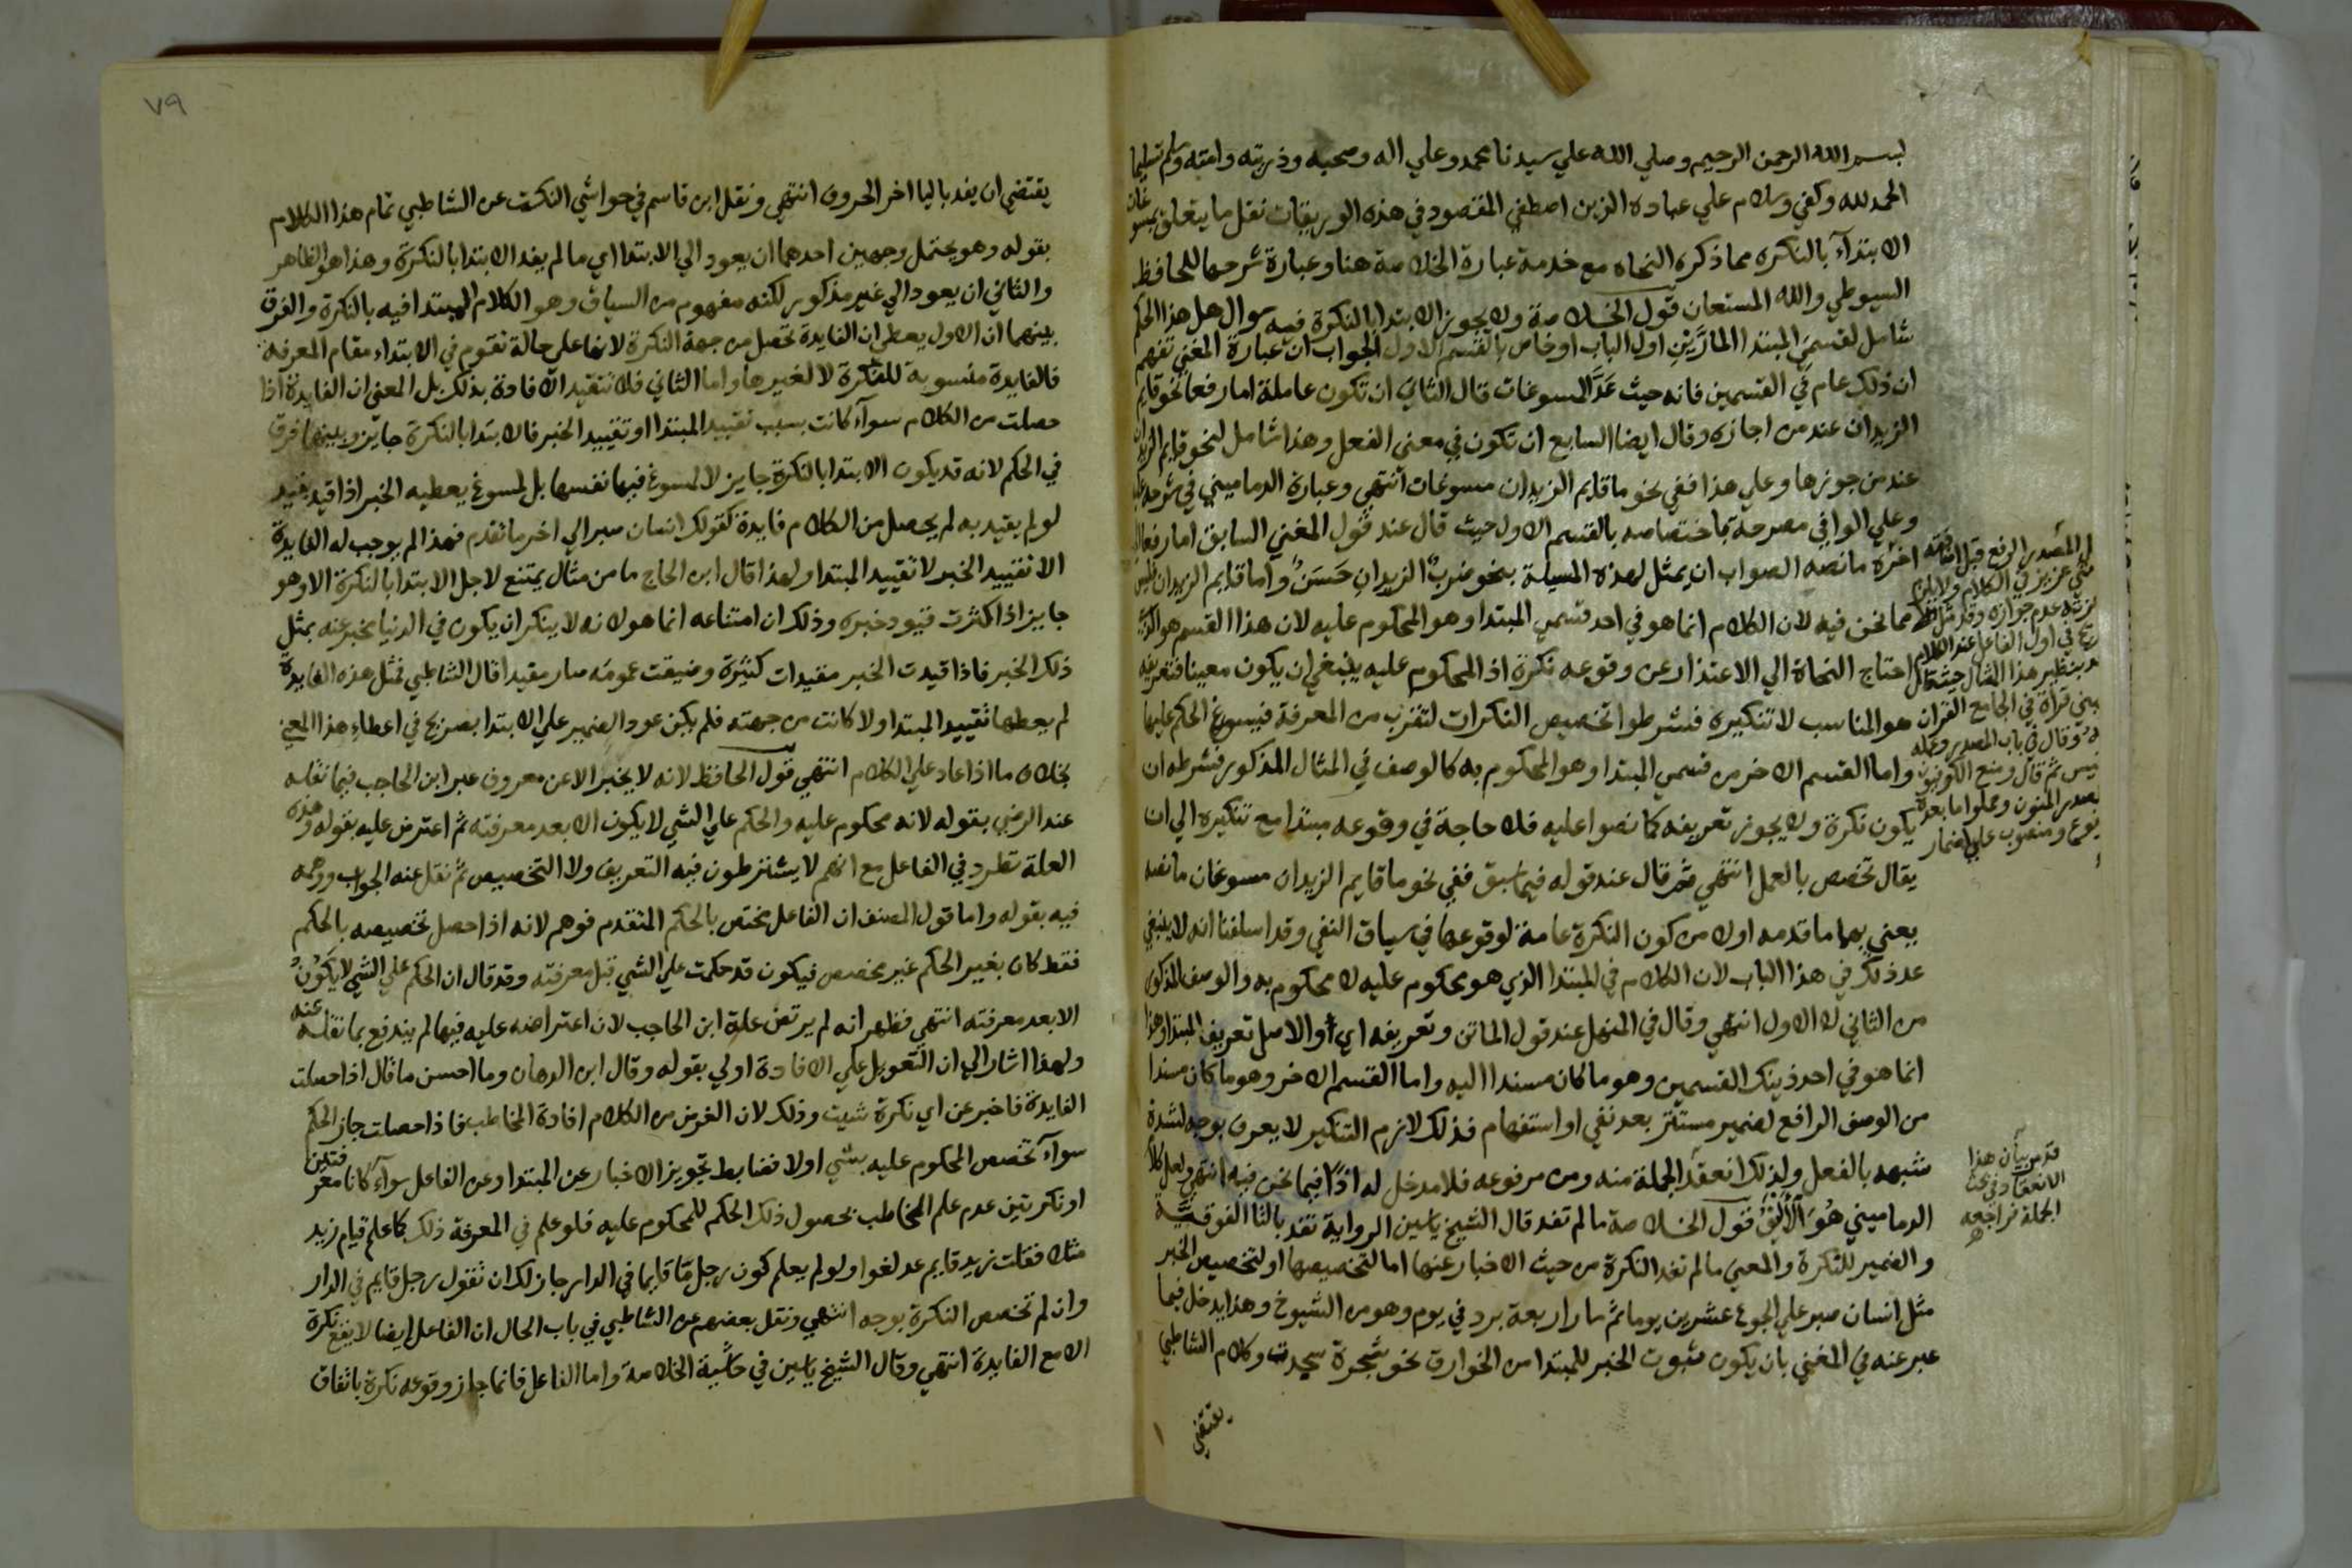 بسم الله الرحمن الرحيم وصلي الله علي سيدنا محمد وعلي اله وصحبه وذريته وامته وسلم تسليما
الحمد لله وكفي وسلام علي عباده الذين اصطفي المقصود في هذه الوريقات نقل ما يتعلق بمسوغات
الابتدآء بالنكره مما ذكره النحاه مع خدمة عبارة الخلاصة هنا وعبارة شرحها للحافظ
السيوطي والله المستعان قول الخلاصة ولا يجوز الابتدا بالنكرة فيه سوال هل هذا الحكم
شامل لقسمي المبتدا المارَّيْنِ اول الباب او خاص بالقسم الاول الجواب ان عبارة المغني تفهم
ان ذلك عام في القسمين فانه حيث عَدَّ المسوغات قال الثاني ان تكون عاملة اما رفعا نحو قايم
الزيدان عند من اجازه وقال ايضا السابع ان تكون في معني الفعل وهذا شامل لنحو قايم الزيدان
عند من جوزها وعلي هذا ففي نحو ما قايم الزيدان مسوغات انتهي وعبارة الدماميني في شرحه عليه
وعلي الوافي مصرحة بما ختصاصه بالقسم الاول حيث قال عند قول المغني السابق اما رفعا الي
اخره ما نصه الصواب ان يمثل لهذه المسيلة بنحو ضربٌ الزيدان حَسَنٌ واما قايم الزيدان فليس
مما نحن فيه لان الكلام انما هو في احد قسمي المبتدا وهو المحكوم عليه لان هذا القسم هو الذي
احتاج النحاة الي الاعتذار عن وقوعه نكرة اذ المحكوم عليه ينبغي ان يكون معينا فتعريفه
هو المناسب لا تنكيره فشرطوا تخصيص النكرات لتقرب من المعرفة فيسوغ الحكم عليها
واما القسم الاخر من قسمي المبتدا وهو المحكوم به كالوصف في المثال المذكور فشرطه ان
يكون نكرة ولا يجوز تعريفه كما نصوا عليه فلا حاجة في وقوعه مبتدا مع تنكيره الي ان
يقال تخصص بالعمل انتهي ثم قال عند قوله فيما سبق ففي نحو ما قايم الزيدان مسوغان ما نصه
يعني بهما ما قدمه اولا من كون النكرة عامة لوقوعها في سياق النفي وقد اسلفنا انه لا ينبغي
عد ذلك في هذا الباب لان الكلام في المبتدا الذي هو محكوم عليه لا محكوم به والوصف المذكور
من الثاني لا الاول انتهي وقال في المنهل عند قول الماتن وتعريفه اي والاصل تعريف المبتدا وهذا
انما هو في احد ذينك القسمين وهو ما كان مسندا اليه واما القسم الاخر وهو ما كان مسندا
من الوصف الرافع لضمير مستتر بعد نفي او استفهام فذلك لازم التنكير لا يعرف بوجه لشدة
شبهه بالفعل ولذلك انعقد الجملة منه ومن مرفوعه فلا مدخل له اذًا فيما نحن فيه انتهي ولعل كلام
الدماميني هُوَ الْأَلْيَقُ قول الخلاصة ما لم تفد قال الشيخ ياسين الرواية تفد بالتا الفوقيَّة
والضمير للنكرة والمعني ما لم تفد النكرة من حيث الاخبار عنها اما لتخصيصها او لتخصيص الخبر
مثل انسان صبر علي الجوع عشرين يوما ثم سار اربعة برد في يوم وهو من الشيوخ وهذا يدخل فيما
عبر عنه في المغني بان يكون ثبوت الخبر للمبتدا من الخوارق نحو شجرة سجدت وكلام الشاطبي
يقتضي
قد مر بيان هذا
الانعقاد في بحث
الجملة فراجعه
٧٩
يقتضي ان يفد باليا اخر الحروف انتهي ونقل ابن قاسم في حواشي النكت عن الشاطبي تمام هذا الكلام
بقوله وهو يحتمل وجهين احدهما ان يعود الي الابتدا اي ما لم يفد الابتدا بالنكرة وهذا هو الظاهر
والثاني ان يعود الي غير مذكور لكنه مفهوم من السياق وهو الكلام المبتدا فيه بالنكرة والفرق
بينهما ان الاول يعطي ان الفايدة تحصل من جهة النكرة لانها علي حالة تقوم في الابتداء مقام المعرفة
فالفايدة منسوبة للنكرة لا لغيرها واما الثاني فلا تتقيد الافادة بذلك بل المعني ان الفايدة اذا
حصلت من الكلام سوآء كانت بسبب تقييد المبتدا او تقييد الخبر فالابتدا بالنكرة جايز وبينهما فرق
في الحكم لانه قد يكون الابتدا بالنكرة جايز لا لمسوغ فيها نفسها بل لمسوغ يعطيه الخبر اذا قيد بقيد
لو لم يقيد به لم يحصل من الكلام فايدة كقولك انسان صبر الي اخر ما تقدم فهذا لم يوجب له الفايدة
الا تقييد الخبر لا تقييد المبتدا ولهذا قال ابن الحاج ما من مثال يمتنع لاجل الابتدا بالنكرة الا وهو
جايز اذا كثرت قيود خبره وذلك ان امتناعه انما هو لانه لا ينكر ان يكون في الدنيا مخبر عنه بمثل
ذلك الخبر فاذا قيدت الخبر مقيدات كثيرة وضيقت عمومه صار مقيدا قال الشاطبي فمثل هذه الفايدة
لم يعطها تقييد المبتدا ولا كانت من جهته فلم يكن عود الضمير علي الابتدا بصريح في اعطاء هذا المعني
بخلاف ما اذا عاد علي الكلام انتهي قول الحافظ لانه لا يخبر الا عن معروف عبر ابن الحاجب فيما نقله
عند الرضي بقوله لانه محكوم عليه والحكم علي الشي لا يكون الا بعد معرفته ثم اعترض عليه بقوله وهذه
العلة تطرد في الفاعل مع انهم لا يشترطون فيه التعريف ولا التخصيص ثم نقل عنه الجواب ووهمه
فيه بقوله واما قول المصنف ان الفاعل مختص بالحكم المتقدم فوهم لانه اذا حصل تخصيصه بالحكم
فقط كان بغير الحكم غير مخصص فيكون قد حكمت علي الشي قبل معرفته وقد قال ان الحكم علي الشي لا يَكُونُ
الا بعد معرفته انتهي فظهر انه لم يرتض علة ابن الحاجب لان اعتراضه عليه فيها لم يندفع بما نقله عنه
ولهذا اشار الي ان التعويل علي الافادة اولي بقوله وقال ابن الدهان وما احسن ما قال اذا حصلت
الفايدة فاخبر عن اي نكرة شيت وذلك لان الغرض من الكلام افادة المخاطب فاذا حصلت جاز الحكم
سوآء تخصص المحكوم عليه بشي اولا فضابط تجويز الاخبار عن المبتدا وعن الفاعل سوآء كانا معرفتين
او نكرتين عدم علم المخاطب بحصول ذلك الحكم للمحكوم عليه فلو علم في المعرفة ذلك كما علم قيام زيد
مثلا فقلت زيد قايم عد لغوا ولو لم يعلم كون رجل مّا قايما في الدار جاز لك ان تقول رجل قايم في الدار
وان لم تخصص النكرة بوجه انتهي ونقل بعضهم عن الشاطبي في باب الحال ان الفاعل ايضا لا يقع نكرة
الا مع الفايدة انتهي وقال الشيخ ياسين في حاشية الخلاصة واما الفاعل فانما جاز وقوعه نكرة باتفاق